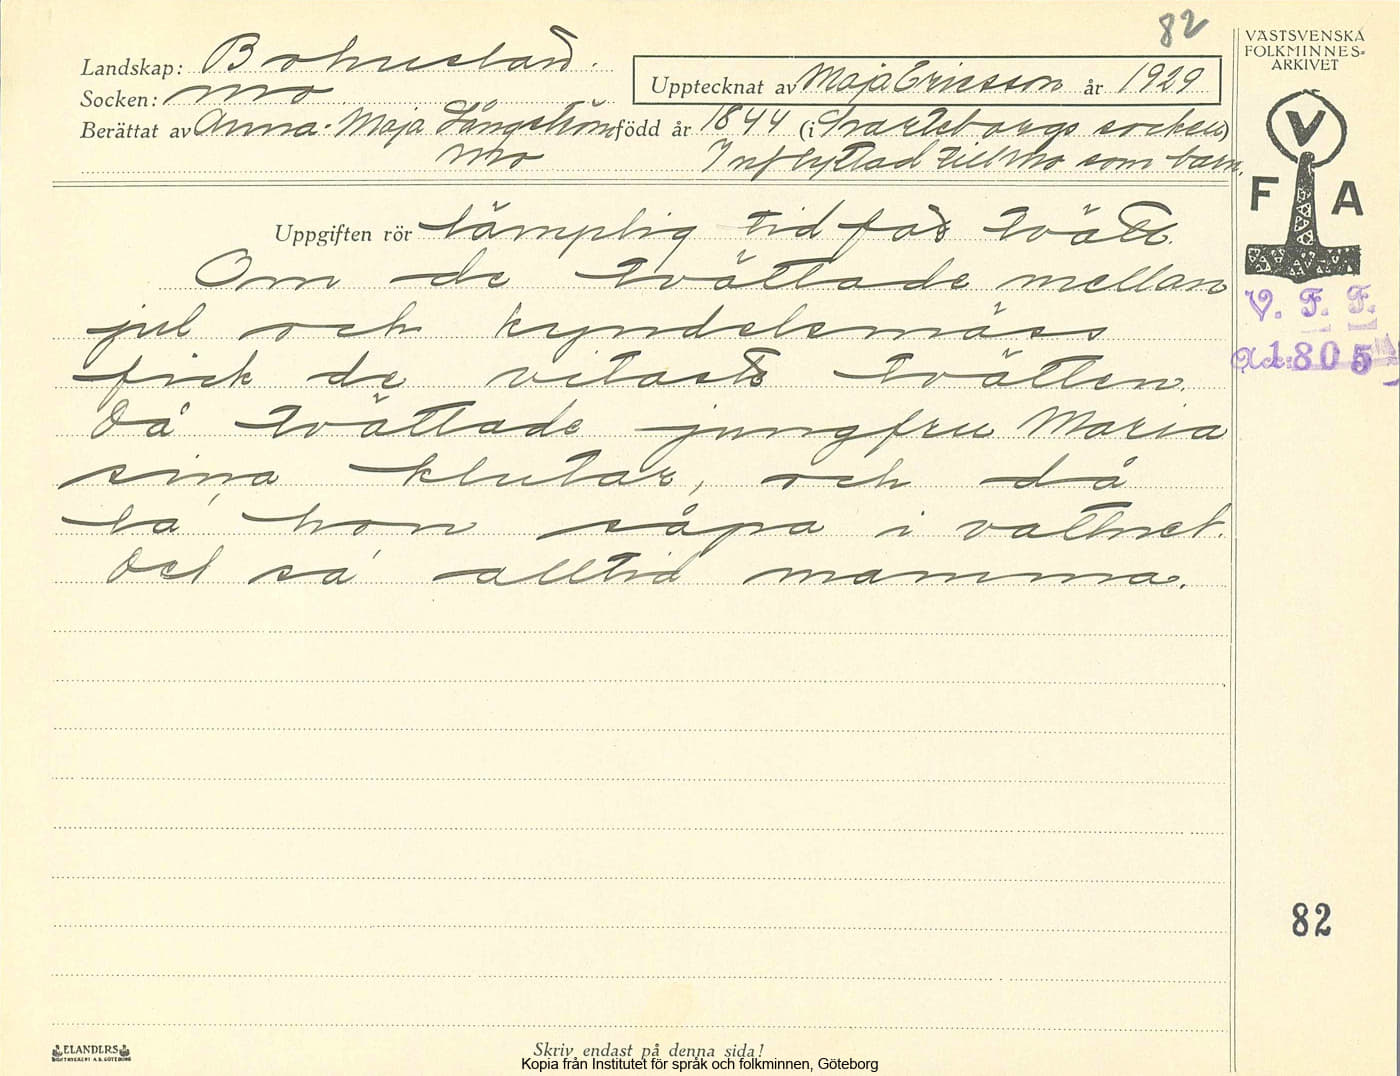 82
VÄSTSVENSKA
FOLKMINNES-
ARKIVET
Landskap: Bohuslän.
Upptecknat av Maja Ericsson år 1929
Socken: Mo
Berättat av Anna-Maja Långström född år 1844 (i Svarteborgs socken)
Mo Inflyttad till Mo som barn.
V
F A
Uppgiften rör lämplig tid för tvätt.
Om de tvättade mellan
jul och kyndelsmäss
fick de vitaste tvätten.
Då tvättade jungfru Maria
sina klutar, och då
la' hon såpa i vattnet.
Det sa' alltid mamma.
V. F. F.
Acc: 1805
82
ELANDERS
BOKTRYCKERI A.B. GÖTEBORG
Skriv endast på denna sida!
Kopia från Institutet för språk och folkminnen, Göteborg